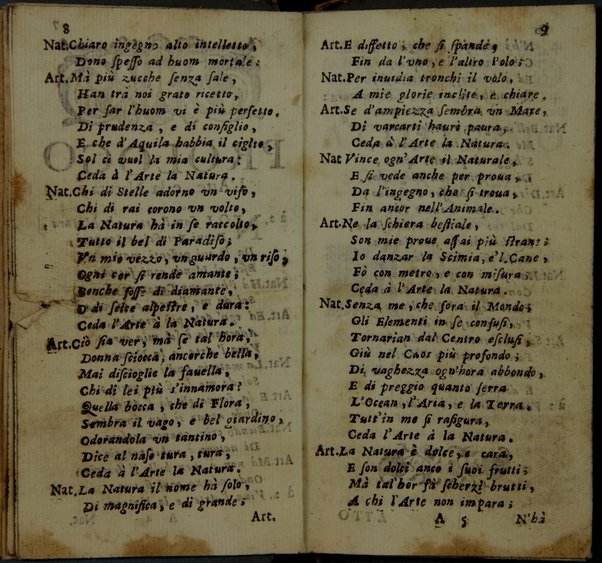 8
Nat.Chiaro ingegno alto intelletto,
Dono spesso ad huom mortale:
Art.Mà più zucche senza sale,
Han trà noi grato ricetto,
Per far l'huom vi è più perfetto.
Di prudenza, e di consiglio,
E che d'Aquila habbia il ciglio,
Sol ci vuol la mia cultura:
Ceda à l'Arte la Natura.
Nat.Chi di Stelle adorno vn viso,
Chi di rai corono vn volto,
La Natura hà in se raccolto,
Tutto il bel di Paradiso;
Vn mio vezzo, vn guardo, vn riso,
Ogni cor si rende amante;
Benche foss' di diamante,
O di selce alpestre, e dura:
Ceda l'Arte à la Natura.
Art.Ciò sia ver, mà se tal hora,
Donna sciocca, ancorche bella,
Mai discioglie la fauella,
Chi di lei più s'innamora?
Quella bocca, che di Flora,
Sembra il vago, e bel giardino,
Odorandola vn tantino,
Dice al naso tura, tura,
Ceda à l'Arte la Natura.
Nat.La Natura il nome hà solo,
Di magnifica, e di grande;
Art.
9
Art.E diffetto, che si spande,
Fin da l'vno, e l'altro Polo:
Nat.Per inuidia tronchi il volo,
A mie glorie inclite, e chiare.
Art.Se d'ampiezza sembra vn Mare,
Di varcarti haurò paura,
Ceda à l'Arte la Natura.
Nat Vince ogn'Arte il Naturale,
E si vede anche per proua,
Da l'ingegno, che si troua,
Fin ancor nell'Animale.
Art.Ne la schiera bestiale,
Son mie proue assai più strane:
Io danzar la Scimia, e'l Cane,
Fò con metro, e con misura,
Ceda à l'Arte la Natura.
Nat.Senza me, che sora il Mondo;
Gli Elementi in se confusi,
Tornarian dal Centro esclusi,
Giù nel Caos più profondo;
Di vaghezza ogn'hora abbondo,
E di preggio quanto serra
L'Ocean, l'Aria, e la Terra.
Tutt'in me si rafigura,
Ceda l'Arte à la Natura.
Art.La Natura è dolce, e cara,
E son dolci anco i suoi frutti;
Mà tal'hor fà scherzi brutti,
A chi l'Arte non impara;
A 5 N'hà